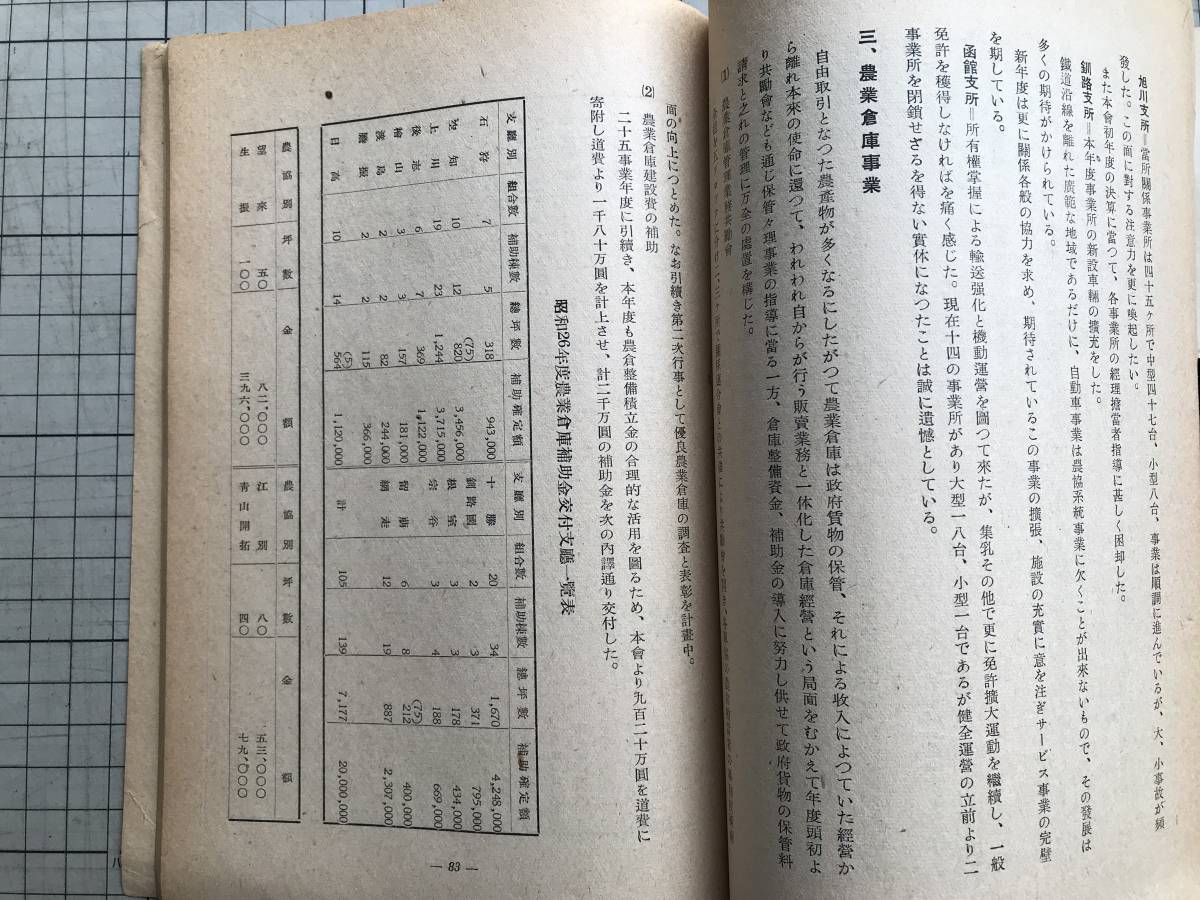 旭川支所＝當所關係事業所は四十五ヶ所で中型四十七台、小型八台、事業は順調に進んでいるが、大、小事故が頻
發した。この面に對する注意力を更に喚起したい。
また本會初年度の決算に當つて、各事業所の經理擔當者指導に甚しく困却した。
釧路支所＝本年度事業所の新設車輛の擴充をした。
鐵道沿線を離れた廣範な地域であるだけに、自動車事業は農協系統事業に欠くことが出來ないもので、その發展は
多くの期待がかけられている。
新年度は更に關係各般の協力を求め、期待されているこの事業の擴張、施設の充實に意を注ぎサービス事業の完璧
を期している。
函館支所＝所有權掌握による輸送强化と機動運營を圖つて來たが、集乳その他で更に免許擴大運動を繼續し、一般
免許を獲得しなければを痛く感じた。現在十四の事業所があり大型一八台、小型一台であるが健全運營の立前より二
事業所を閉鎖せざるを得ない實休になつたことは誠に遺憾としている。
三、農業倉庫事業
自由取引となつた農產物が多くなるにしたがつて農業倉庫は政府貨物の保管、それによる收入によつていた經營か
ら離れ本來の使命に還つて、われわれ自からが行う販賣業務と一体化した倉庫經營という局面をむかえて年度頭初よ
り共勵會なども通じ保管々理事業の指導に當る一方、倉庫整備資金、補助金の導入に努力し供せて政府貨物の保管料
請求とこれの管理に万全の處置を構じた。
(1) 農業倉庫管理業務共勵會
面の向上につとめた。なお引續き第二次行事として優良農業倉庫の調査と表彰を計畫中。
(2) 農業倉庫建設費の補助
二十五事業年度に引續き、本年度も農倉整備積立金の合理的な活用を圖るため、本會より九百二十万圓を道費に
寄附し道費より一千八十万圓を計上させ、計二千万圓の補助金を次の內譯通り交付した。
昭和26年度農業倉庫補助金交付支廳一覽表
支廳別 組合數 補助棟數 總坪數 補助確定額 支廳別 組合數 補助棟數 總坪數 補助確定額
石狩 7 5 318 943,000 十勝 20 34 1,670 4,248,000
空知 10 12 (75) 820 3,456,000 釧路國 2 3 371 795,000
上川 19 23 1,244 3,715,000 根室 3 3 178 434,000
後志 6 7 369 1,122,000 宗谷 3 4 188 669,000
檜山 3 3 157 181,000 留萠 6 8 (75) 212 400,000
渡島 2 2 82 244,000 網走 12 19 887 2,307,000
膽振 2 2 115 366,000
日高 10 14 (5) 564 1,120,000 計 105 139 7,177 20,000,000
農協別 坪數 金額 農協別 坪數 金額
望來 五〇 八二、〇〇〇 江別 八〇 五三、〇〇〇
生振 一〇〇 三九六、〇〇〇 青山開拓 四〇 七九、〇〇〇
— 83 —
八